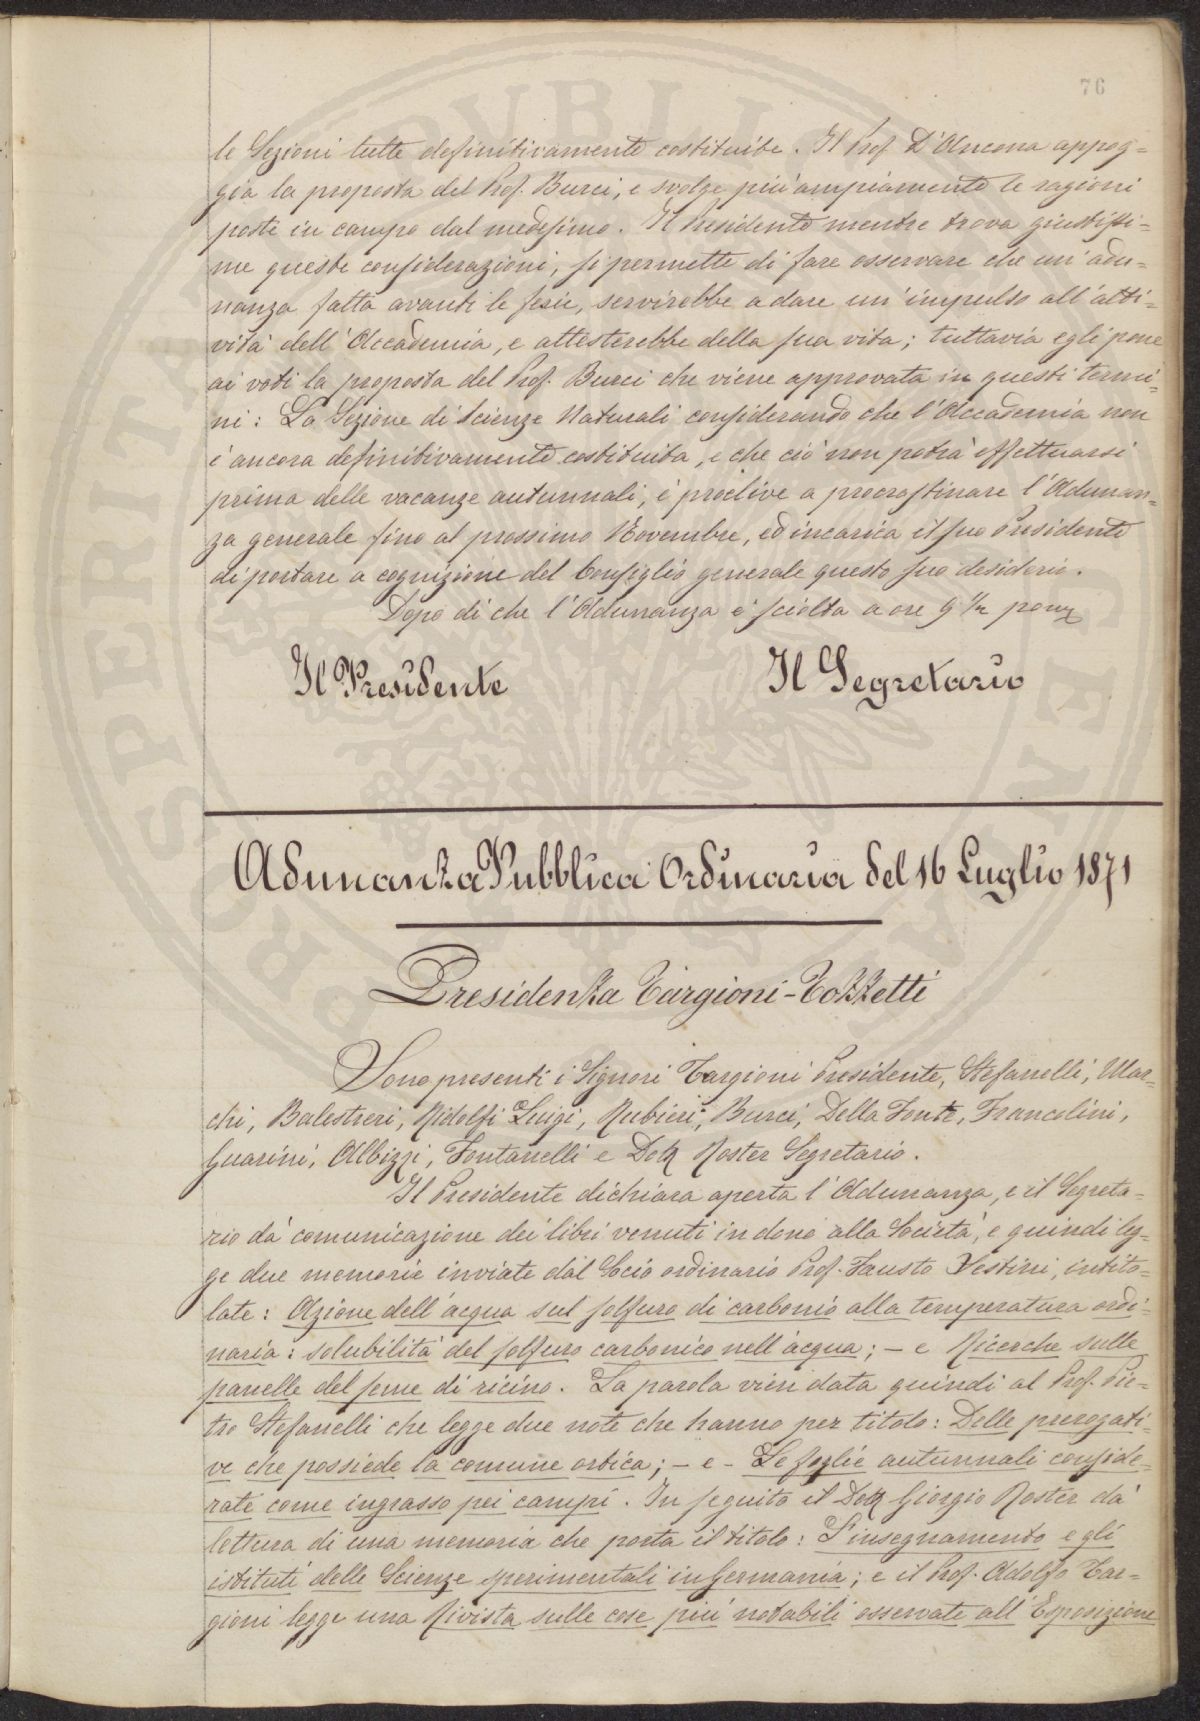 76
le Sezioni tutte definitivamente costituite. Il Prof. D'Ancona appog=
gia la proposta del Prof. Burci, e svolge più ampiamente le ragioni
poste in campo dal medesimo. Il Presidente mentre trova giustissi=
me queste considerazioni, si permette di fare osservare che un'adu=
nanza fatta avanti le ferie, servirebbe a dare un'impulso all'atti=
vità dell'Accademia, e attesterebbe della sua vita; tuttavia egli pone
ai voti la proposta del Prof. Burci che viene approvata in questi termi=
ni: La Sezione di Scienze Naturali considerando che l'Accademia non
è ancora definitivamente costituita, e che ciò non potrà effettuarsi
prima delle vacanze autunnali, è proclive a procrastinare l'Adunan=
za generale fino al prossimo Novembre, ed incarica il suo Presidente
di portare a cognizione del Consiglio generale questo suo desiderio.
Dopo di che l'Adunanza è sciolta a ore 9 1/2 pom
Il Presidente
Il Segretario
Adunanza Pubblica Ordinaria del 16 Luglio 1871
Presidenza Targioni-Tozzetti
Sono presenti i Signori Targioni Presidente, Stefanelli, Mar=
chi, Balestrieri, Ridolfi Luigi, Rubieri, Burci, Della Fonte, Francolini,
Guarini, Albizzi, Fontanelli e Dott Roster Segretario.
Il Presidente dichiara aperta l'Adunanza, e il Segreta=
rio dà comunicazione dei libri venuti in dono alla Società, e quindi leg=
ge due memorie inviate dal Socio ordinario Prof. Fausto Sestini, intito=
late: Azione dell'acqua sul solfuro di carbonio alla temperatura ordi=
naria: solubilità del solfuro carbonico nell'acqua; - e Ricerche sulle
panelle del seme di ricino. La parola vien data quindi al Prof. Pie=
tro Stefanelli che legge due note che hanno per titolo: Delle prerogati=
ve che possiede la comune ortica; - e - Le foglie autunnali conside=
rate come ingrasso pei campi. In seguito il Dott Giorgio Roster dà
lettura di una memoria che porta il titolo: L'insegnamento e gli
istituti delle Scienze sperimentali in Germania; e il Prof. Adolfo Tar=
gioni legge una Rivista sulle cose più notabili osservate all'Esposizione